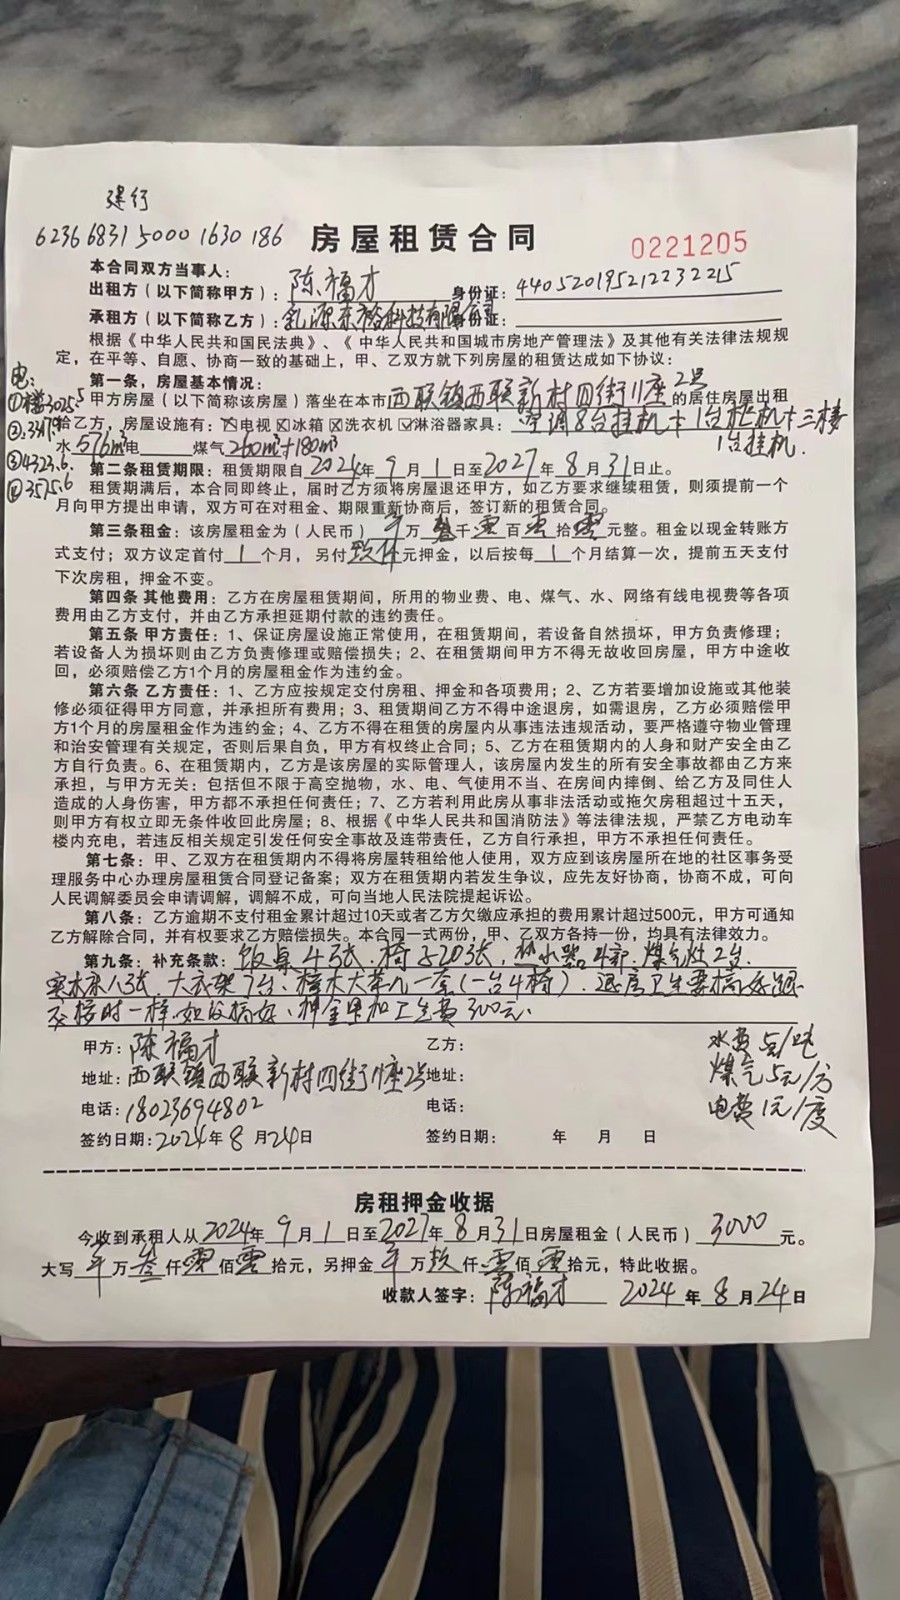 建行
6236 6831 5000 1630 186
房屋租赁合同
0221205
本合同双方当事人：
出租方（以下简称甲方）：陈福才 身份证：440520195212232215
承租方（以下简称乙方）：乳源东裕科技有限公司 身份证：
根据《中华人民共和国民法典》、《中华人民共和国城市房地产管理法》及其他有关法律法规规
定，在平等、自愿、协商一致的基础上，甲、乙双方就下列房屋的租赁达成如下协议：
电：
第一条，房屋基本情况：
①楼3025.5 甲方房屋（以下简称该房屋）落坐在本市西联镇西联新村四街11座2号的居住房屋出租
给乙方，房屋设施有：☒电视☒冰箱☒洗衣机☑淋浴器家具：空调8台挂机+1台柜机+三楼
1台挂机.
水576m³电 煤气260m³+180m³
③4323.6. 第二条租赁期限：租赁期限自2024年9月1日至2027年8月31日止。
④3575.6 租赁期满后，本合同即终止，届时乙方须将房屋退还甲方，如乙方要求继续租赁，则须提前一个
月向甲方提出申请，双方可在对租金、期限重新协商后，签订新的租赁合同。
第三条租金：该房屋租金为（人民币） 万叁千零百零拾零元整。租金以现金转账方
式支付；双方议定首付1个月，另付玖仟元押金，以后按每1个月结算一次，提前五天支付
下次房租，押金不变。
第四条 其他费用：乙方在房屋租赁期间，所用的物业费、电、煤气、水、网络有线电视费等各项
费用由乙方支付，并由乙方承担延期付款的违约责任。
第五条 甲方责任：1、保证房屋设施正常使用，在租赁期间，若设备自然损坏，甲方负责修理；
若设备人为损坏则由乙方负责修理或赔偿损失；2、在租赁期间甲方不得无故收回房屋，甲方中途收
回，必须赔偿乙方1个月的房屋租金作为违约金。
第六条 乙方责任：1、乙方应按规定交付房租、押金和各项费用；2、乙方若要增加设施或其他装
修必须征得甲方同意，并承担所有费用；3、租赁期间乙方不得中途退房，如需退房，乙方必须赔偿甲
方1个月的房屋租金作为违约金；4、乙方不得在租赁的房屋内从事违法违规活动，要严格遵守物业管理
和治安管理有关规定，否则后果自负，甲方有权终止合同；5、乙方在租赁期内的人身和财产安全由乙
方自行负责。6、在租赁期内，乙方是该房屋的实际管理人，该房屋内发生的所有安全事故都由乙方来
承担，与甲方无关：包括但不限于高空抛物，水、电、气使用不当、在房间内摔倒、给乙方及同住人
造成的人身伤害，甲方都不承担任何责任；7、乙方若利用此房从事非法活动或拖欠房租超过十五天，
则甲方有权立即无条件收回此房屋；8、根据《中华人民共和国消防法》等法律法规，严禁乙方电动车
楼内充电，若违反相关规定引发任何安全事故及连带责任，乙方自行承担，甲方不承担任何责任。
第七条：甲、乙双方在租赁期内不得将房屋转租给他人使用，双方应到该房屋所在地的社区事务受
理服务中心办理房屋租赁合同登记备案；双方在租赁期内若发生争议，应先友好协商，协商不成，可向
人民调解委员会申请调解，调解不成，可向当地人民法院提起诉讼。
第八条：乙方逾期不支付租金累计超过10天或者乙方欠缴应承担的费用累计超过500元，甲方可通知
乙方解除合同，并有权要求乙方赔偿损失。本合同一式两份，甲、乙双方各持一份，均具有法律效力。
第九条：补充条款：饭桌4张.椅子20张，热水器4部.煤气灶2台.
实木床八张.大衣架7台、樟木大茶几一套（一台4椅）.退房卫生要搞好跟
交接时一样.如没搞好、押金里扣卫生费300元.
甲方：陈福才 乙方：
水费5元/吨
地址：西联镇西联新村四街11座2号 地址：
煤气5元/方
电话：18023694802 电话：
电费1元/度
签约日期：2024年8月24日 签约日期： 年 月 日
房租押金收据
今收到承租人从2024年9月1日至2027年8月31日房屋租金（人民币）3000元。
大写 万叁仟零佰零拾元，另押金 万玖仟零佰零拾元，特此收据。
收款人签字：陈福才 2024年8月24日